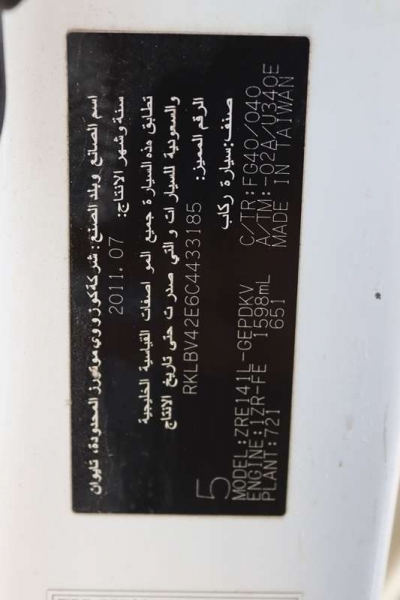 اسم الصانع وبلد الصنع: شركة كوزووي موتورز المحدودة، تايوان
سنة وشهر الانتاج: 2011.07
تطابق هذه السيارة جميع المواصفات القياسية الخليجية
والسعودية للسيارات والتي صدرت حتى تاريخ الانتاج
الرقم المميز: RKLBV42E6C4433185
صنف: سيارة ركاب
5
MODEL: ZRE141L-GEPDKV C/TR: FG40/040
ENGINE: 1ZR-FE 1598mL A/TM: -02A/U340E
PLANT: 721 651 MADE IN TAIWAN